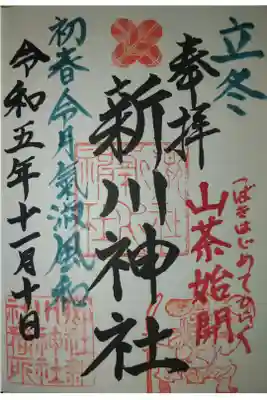 立冬
奉拝
つばきはじめてひらく
山茶始開
新川神社
初春令月氣淑風和
令和五年十一月十日